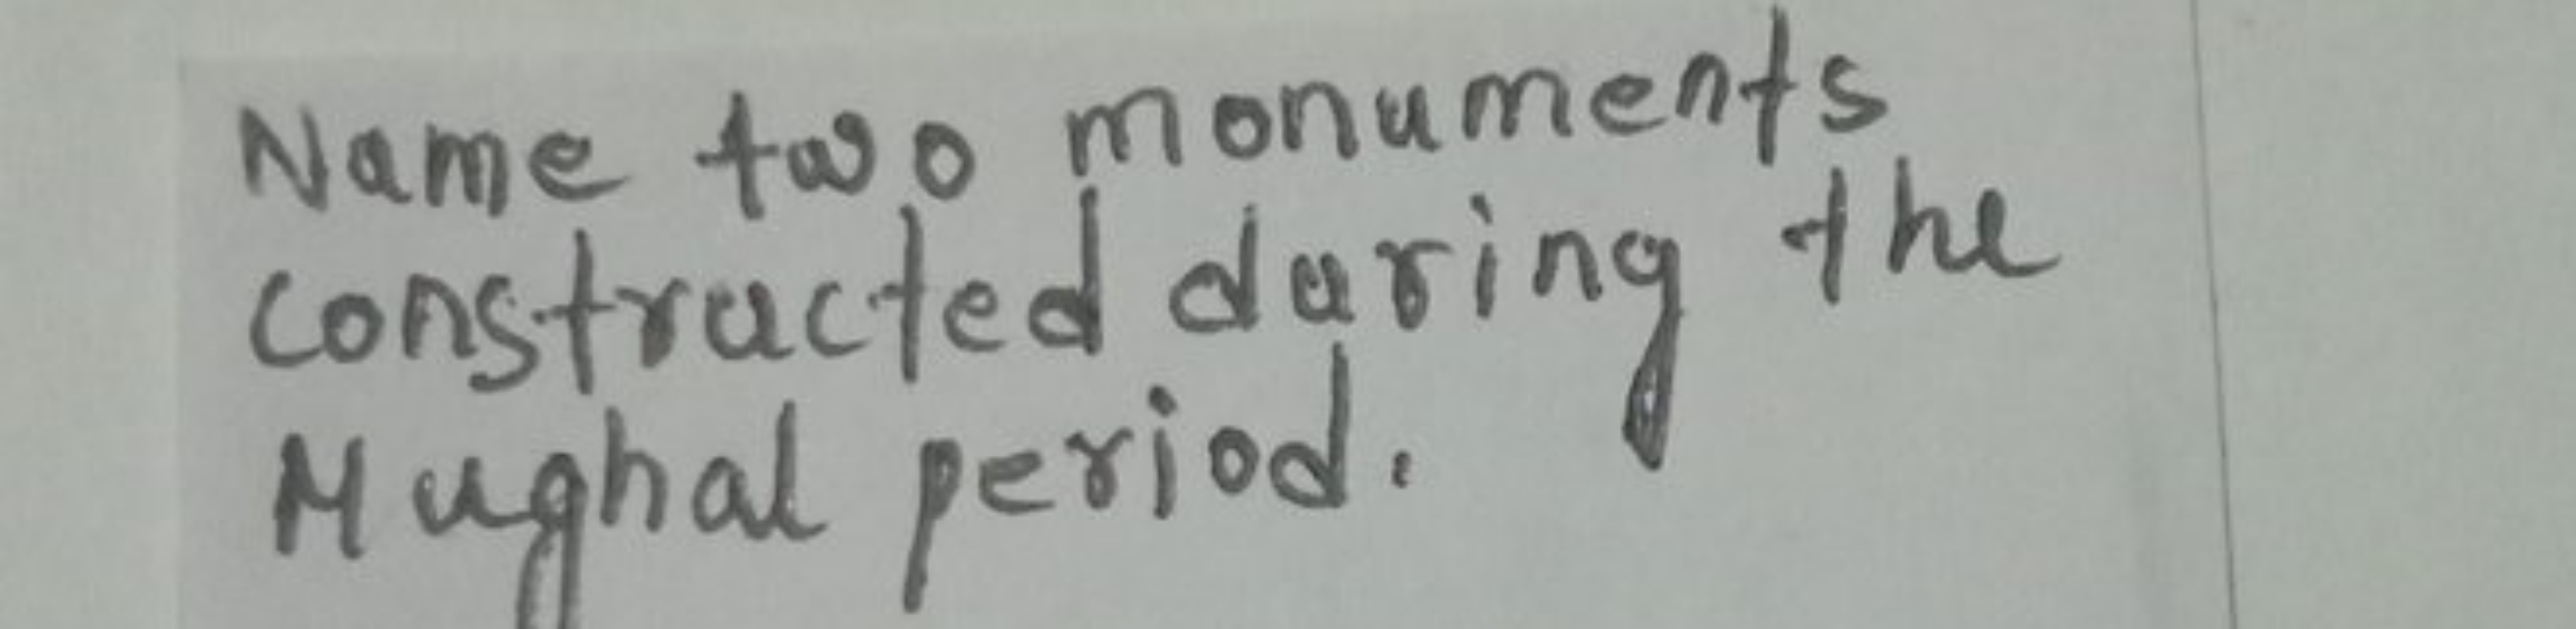 Name two monuments
constructed during the
Mughal period.